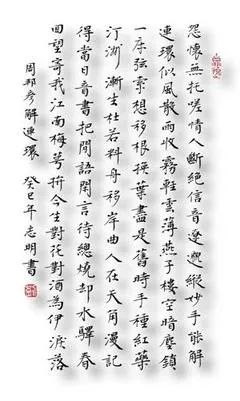 怨懷無托嗟情人斷絕信音遼邈縱妙手能解
連環似風散雨收霧輕雲薄燕子樓空暗塵鎖
一床弦索想移根換葉盡是舊時手種紅藥
汀洲漸生杜若料舟移岸曲人在天角漫記
得當日音書把閒語閒言待總燒却水驛春
回望寄我江南梅萼拚今生對花對酒為伊淚落
周邦彥解連環 癸巳年志明書